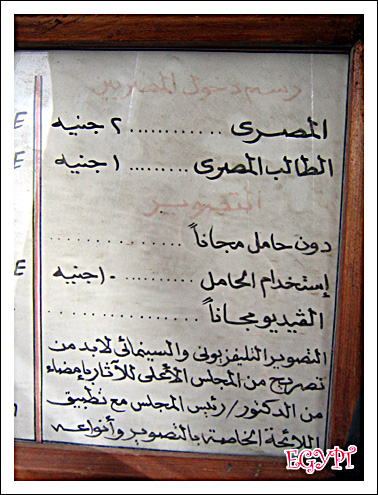 رسم دخول المصريين
المصرى ............ ٢ جنيه
الطالب المصرى ......... ١ جنيه
التصوير
دون حامل مجاناً ..............
إستخدام الحامل .......... ١٠ جنيه
الفيديو مجاناً ................
التصوير التليفزيونى والسينمائى لابد من
تصريح من المجلس الأعلى للآثار بإمضاء
من الدكتور/رئيس المجلس مع تطبيق
اللائحة الخاصة بالتصوير وأنواعه
EGYPT